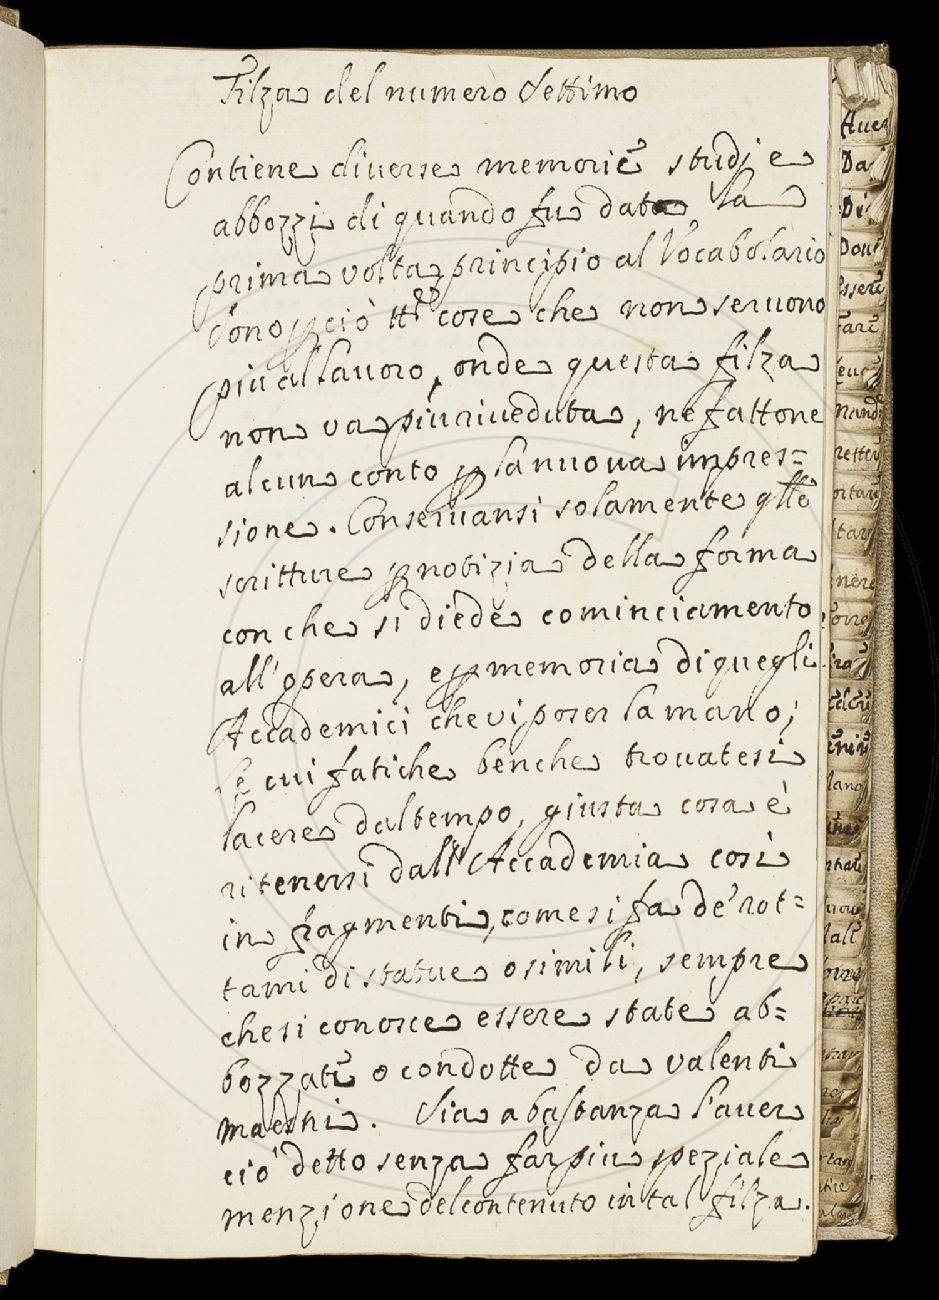 Filza del numero Settimo
Contiene diuerse memorie studj e
abbozzi di quando fu dato la
prima volta principio al Vocabolario
Sono p ciò tte cose che non seruono
piu al lauoro, onde questa filza
non va piu riueduta, ne fattone
alcun conto p la nuoua impres=
sione. Conseruansi solamente qlle
scritture p notizia della forma
con che si diede cominciamento
all'opera, e p memoria di quegli
Accademici che vi poser la mano;
le cui fatiche benche trouatesi
lacere dal tempo, giusta cosa è
ritenersi dall'Accademia così
in fragmenti, come si fa de' rot=
tami di statue o simili, sempre
che si conosce essere state ab=
bozzate o condotte da valenti
maestri. Sia abastanza l'auer
ciò detto senza far piu speziale
menzione del contenuto in tal filza.
Auer
Da
Di
Doue
Essere
Fare